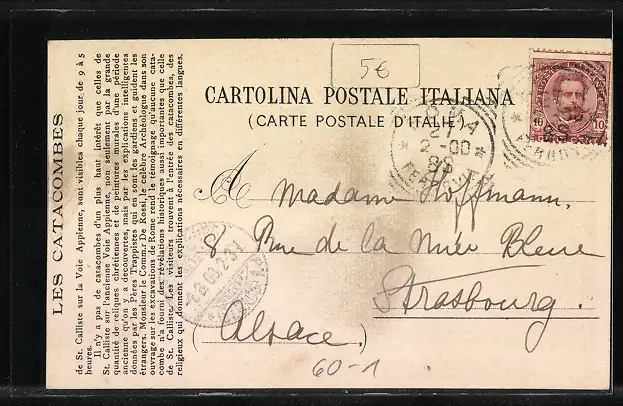 LES CATACOMBES
de St. Calliste sur la Voie Appienne, sont visibles chaque jour de 9 à 5
heures.
Il n'y a pas de catacombes d'un plus haut intérêt que celles de
St. Calliste sur l'ancienne Voie Appienne, non seulement par la grande
quantité de reliques chrétiennes et de peintures murales d'une période
ancienne qu'on y a découvertes, mais par les explications intelligentes
données par les Pères Trappistes qui en sont les gardiens et guident les
étrangers. Monsieur le Comm.r De Rossi, le célèbre Archéologue dans son
ouvrage sur les excavations de Rome rend le témoignage qu'aucune cata-
combe n'a fourni des révélations historiques aussi importantes que celle
de St. Calliste. Les visiteurs trouvent à l'entrée des catacombes, des
religieux qui donnent les explications nécessaires en différentes langues.
5€
CARTOLINA POSTALE ITALIANA
(CARTE POSTALE D'ITALIE)
ROMA
2-00
8S
10 10
8S
A Madame Hoffmann,
8 Rue de la Nuée Bleue
Strasbourg.
(Alsace.)
60-1